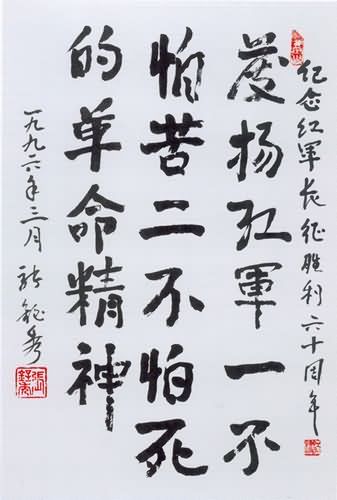 纪念红軍长征胜利六十周年
发扬红軍一不
怕苦二不怕死
的革命精神
一九九六年三月 张铚秀